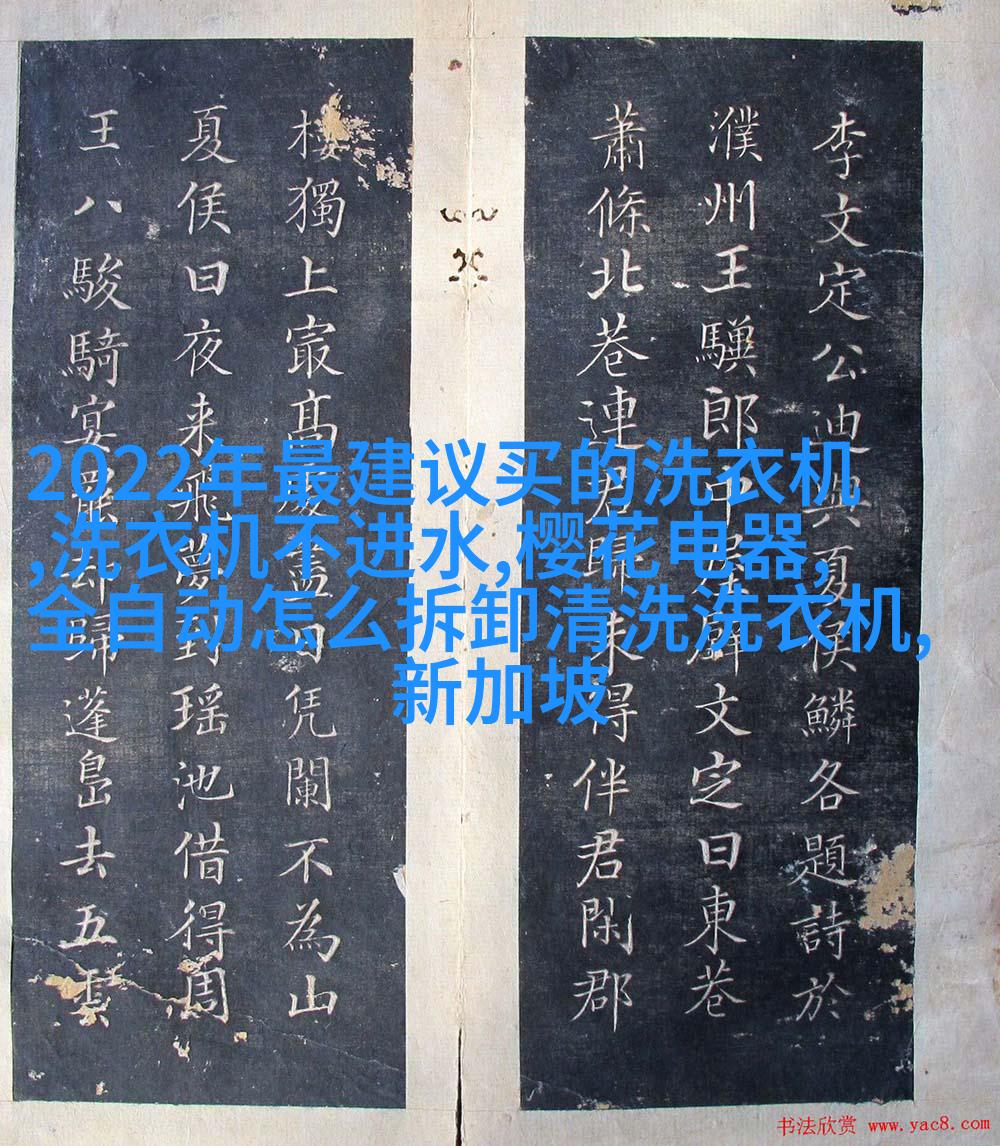 李文定公迪與夏侯鱗各題詩於
濮州王驥郎中屋壁文定曰東巷
蕭條北巷連君歸未得伴君閑郡
樓獨上㝡髙處盡日凭闌不為山
夏侯曰夜来飛夢到瑶池借得周
王八駿騎宴罷却歸蓬島去五雲
2022年最建议买的洗衣机
,洗衣机不进水,樱花电器,
全自动怎么拆卸清洗洗衣机,
新加坡
书法欣赏 www.yac8.com